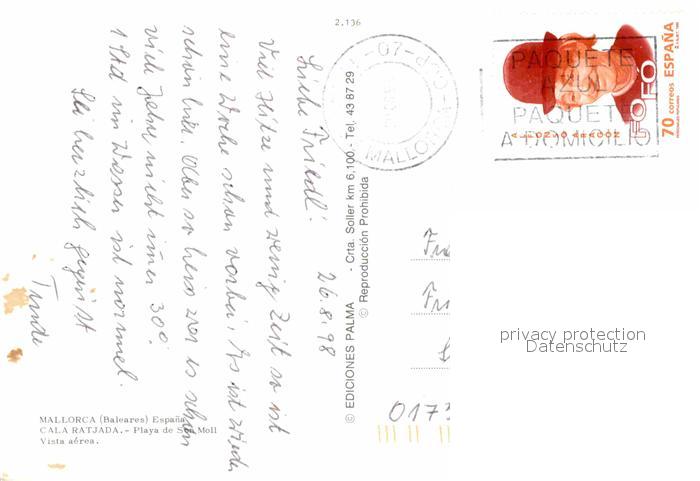 2.136
Liebe Friedl! 26.8.98
Viel Hitze und wenig Zeit so ist
eine Woche schon vorbei. Es ist wieder
schön hier. Aber so heiss war es schon
viele Jahre nicht immer 30°.
1 Std im Wasser ist normal.
Sei herzlich gegrüßt
MALLORCA (Baleares) España
CALA RATJADA. - Playa de Son Moll
Vista aérea.
© EDICIONES PALMA - Crta. Soller km 6,100 - Tel. 43 87 29
© Reproducción Prohibida
MALLORCA
PAQUETE
AZUL
PAQUETE
A DOMICILIO
ALFONSO ARAGON
FOFO
70 correos ESPAÑA
0173
privacy protection
Datenschutz